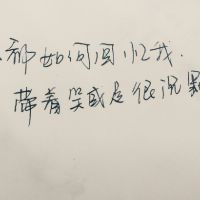 都如何回忆我.
带着笑或是很沉默